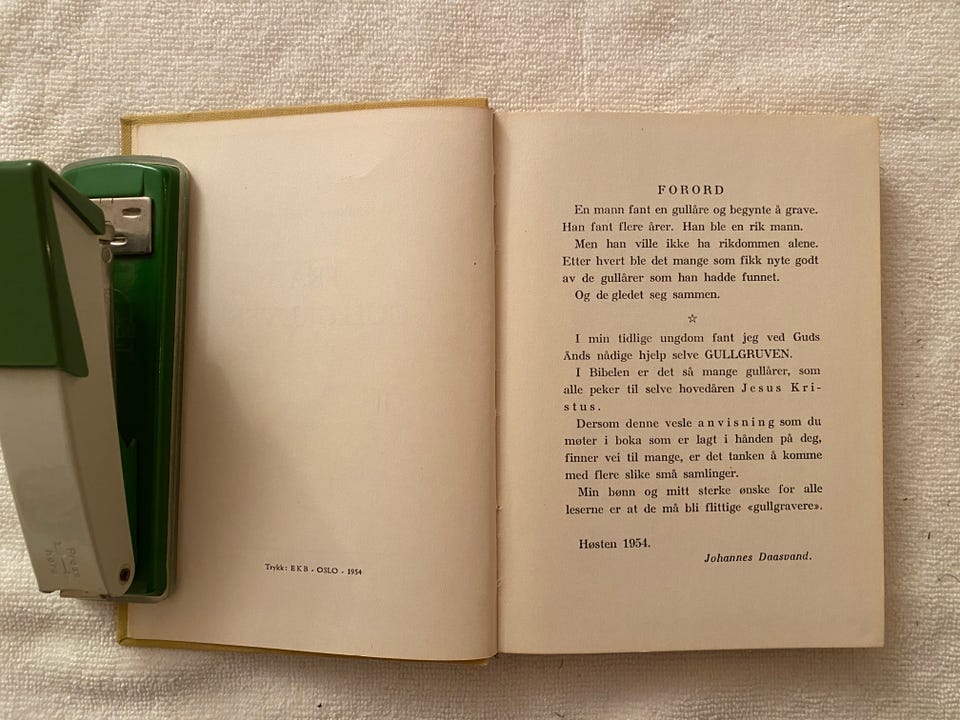 Press
here
Trykk: EKB - OSLO - 1954
FORORD
En mann fant en gullåre og begynte å grave.
Han fant flere årer. Han ble en rik mann.
Men han ville ikke ha rikdommen alene.
Etter hvert ble det mange som fikk nyte godt
av de gullårer som han hadde funnet.
Og de gledet seg sammen.
☆
I min tidlige ungdom fant jeg ved Guds
Ånds nådige hjelp selve GULLGRUVEN.
I Bibelen er det så mange gullårer, som
alle peker til selve hovedåren Jesus Kri-
stus.
Dersom denne vesle anvisning som du
møter i boka som er lagt i hånden på deg,
finner vei til mange, er det tanken å komme
med flere slike små samlinger.
Min bønn og mitt sterke ønske for alle
leserne er at de må bli flittige «gullgravere».
Høsten 1954.
Johannes Daasvand.